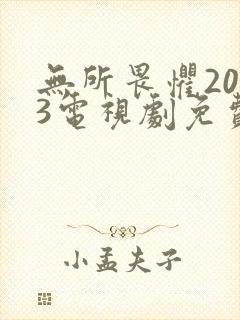 無所畏懼20
3電視劇免費
小孟夫子